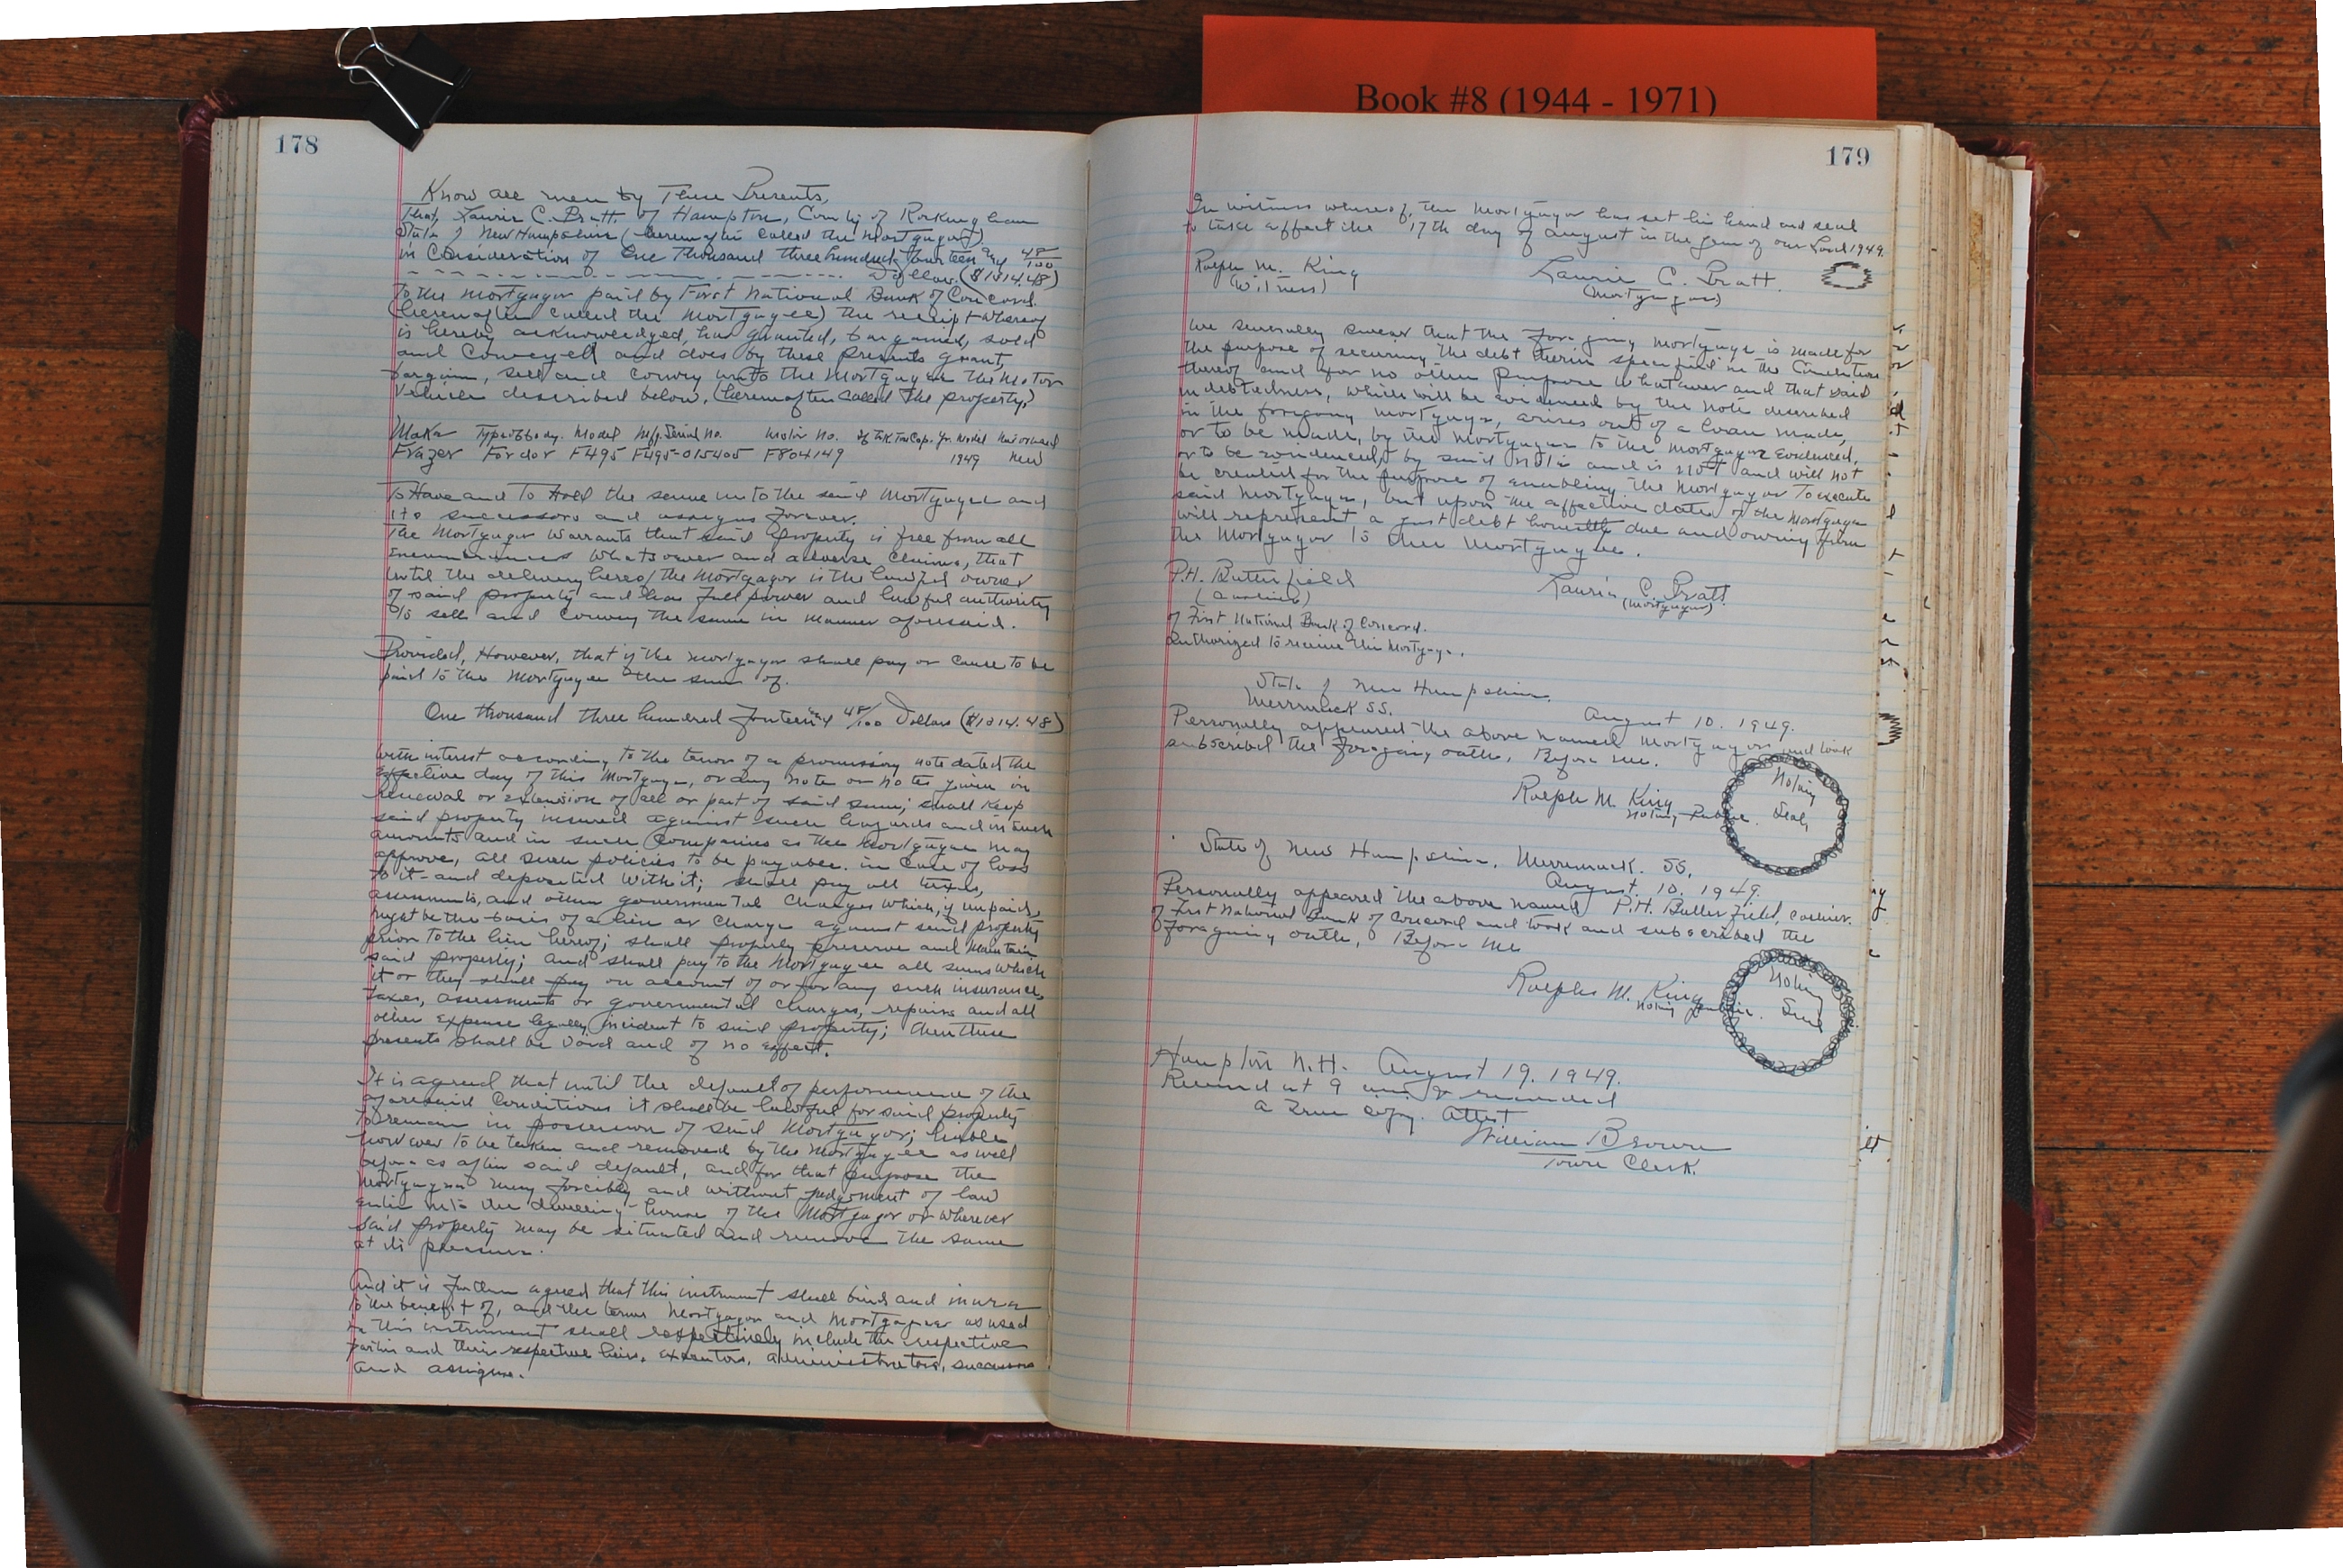 Book #8 (1944 - 1971)
178
Know all men by These Presents,
That, Laurin C. Pratt of Hampton, County of Rockingham
State of New Hampshire (hereinafter called the Mortgagor)
in Consideration of One Thousand three hundred fourteen and 48/100
Dollars ($1314.48)
to the mortgagor paid by First National Bank of Concord.
(hereinafter called the Mortgagee) the receipt whereof
is hereby acknowledged, has granted, bargained, sold
and Conveyed and does by these presents grant,
bargain, sell and convey unto the Mortgagee the Motor
Vehicle described below, (hereinafter called the property,)
Make Type of body. Model Mfg. Serial No. Motor No. If Trk Ton Cap. Yr. Model New or used
Frazer Fordor F495 F495-015405 F804149 1949 New
To Have and To Hold the same unto the said Mortgagee and
its successors and assigns forever.
The Mortgagor warrants that said property is free from all
encumbrances whatsoever and adverse claims, that
until the delivery hereof the Mortgagor is the lawful owner
of said property and has full power and lawful authority
to sell and convey the same in manner aforesaid.
Provided, However, that if the mortgagor shall pay or cause to be
paid to the Mortgagee the sum of.
One thousand three hundred fourteen and 48/100 Dollars ($1314.48)
with interest according to the tenor of a promissory note dated the
effective day of this Mortgage, or any note or notes given in
renewal or extension of all or part of said sum; shall keep
said property insured against such hazards and in such
amounts and in such Companies as the Mortgagee may
approve, all such policies to be payable in case of loss
to it and deposited with it; shall pay all taxes,
assessments, and other governmental charges which, if unpaid,
might be the basis of a lien or charge against said property
prior to the lien hereof; shall properly preserve and maintain
said property; and shall pay to the Mortgagee all sums which
it or they shall pay on account of or for any such insurance,
taxes, assessments or governmental charges, repairs and all
other expense legally incident to said property; then these
presents shall be void and of no effect.
It is agreed that until the default of performance of the
aforesaid Conditions it shall be lawful for said property
to remain in possession of said Mortgagor; liable
however to be taken and removed by the Mortgagee as well
before as after said default, and for that purpose the
Mortgagee may forcibly and without judgement of law
enter into the dwelling-house of the Mortgagor or wherever
said property may be situated and remove the same
at its pleasure.
And it is further agreed that this instrument shall bind and inure
to the benefit of, and the terms Mortgagor and Mortgagee as used
in this instrument shall respectively include the respective
parties and their respective heirs, executors, administrators, successors
and assigns.
179
In witness whereof, the Mortgagor has set his hand and seal
to take effect the 17th day of August in the year of our Lord 1949.
Ralph M. King Laurin C. Pratt.
(Witness) (Mortgagor)
We severally swear that the foregoing mortgage is made for
the purpose of securing the debt therein specified in the Condition
thereof and for no other purpose whatever and that said
indebtedness, which will be evidenced by the note described
in the foregoing mortgage, arises out of a loan made,
or to be made, by the Mortgagee to the Mortgagor Evidenced,
or to be evidenced, by said note and is not and will not
be created for the purpose of enabling the Mortgagor to execute
said Mortgage, but upon the effective date of the Mortgage
will represent a just debt honestly due and owing from
the Mortgagor to the Mortgagee.
P.H. Butterfield Laurin C. Pratt
(Cashier) (Mortgagor)
of First National Bank of Concord.
Authorized to receive this Mortgage.
State of New Hampshire.
Merrimack SS. August 10. 1949.
Personally appeared the above named Mortgagor and took
subscribed the foregoing oath. Before me.
Ralph M. King
Notary Public. Notary Seal
State of New Hampshire. Merrimack. SS.
August. 10. 1949.
Personally appeared the above named P.H. Butterfield, cashier.
of First National Bank of Concord and took and subscribed the
foregoing oath, Before Me
Ralph M. King
Notary public. Notary Seal
Hampton N.H. August 19. 1949.
Received at 9 and recorded
a True copy. Attest
William Brown
Town Clerk.